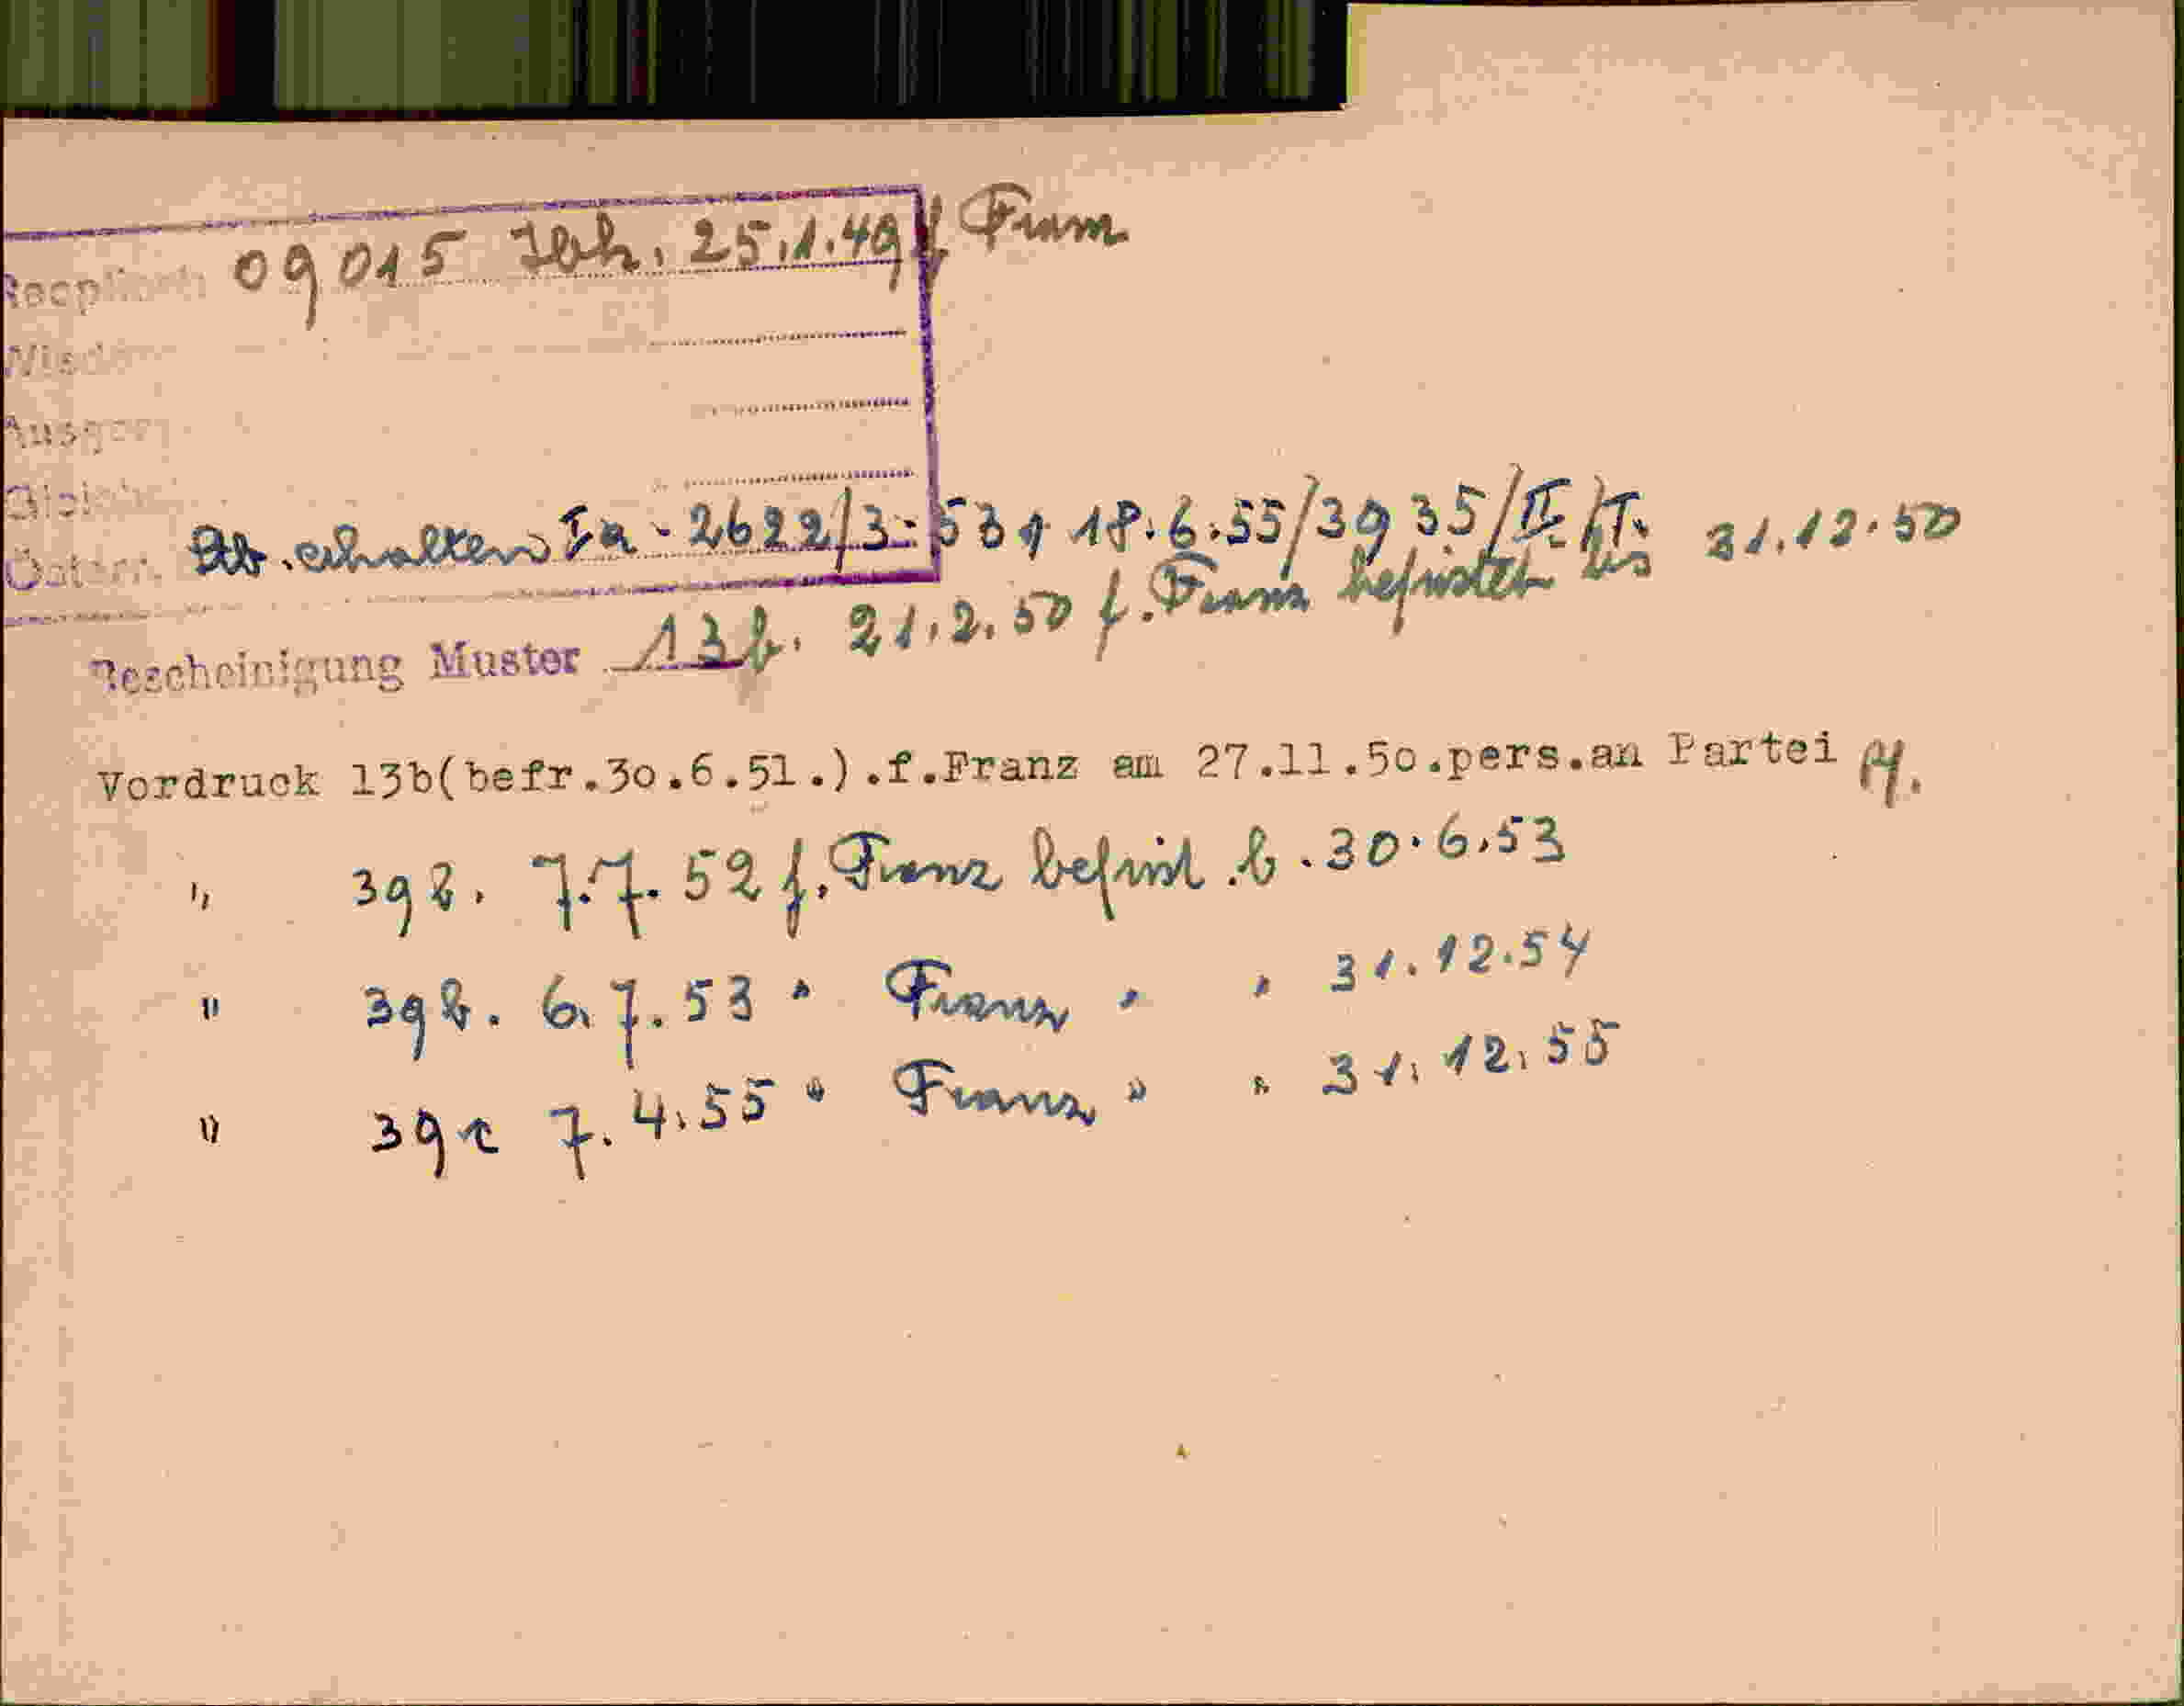 09015 Jbk. 25.1.49 f Franz
Ausger
Gleich
Österr.
Stb. erhalten Ia - 2622/3-53 v 18.6.55/3935/II/T.
Bescheinigung Muster 13b. 21.2.50 f. Franz befristet bis 31.12.50
Vordruck 13b(befr.30.6.51.).f.Franz am 27.11.50.pers.an Partei
" 39b. 7.7.52 f. Franz befrist. b. 30.6.53
" 39b. 6.7.53 " Franz " " 31.12.54
" 39c 7.4.55 " Franz " " 31.12.55